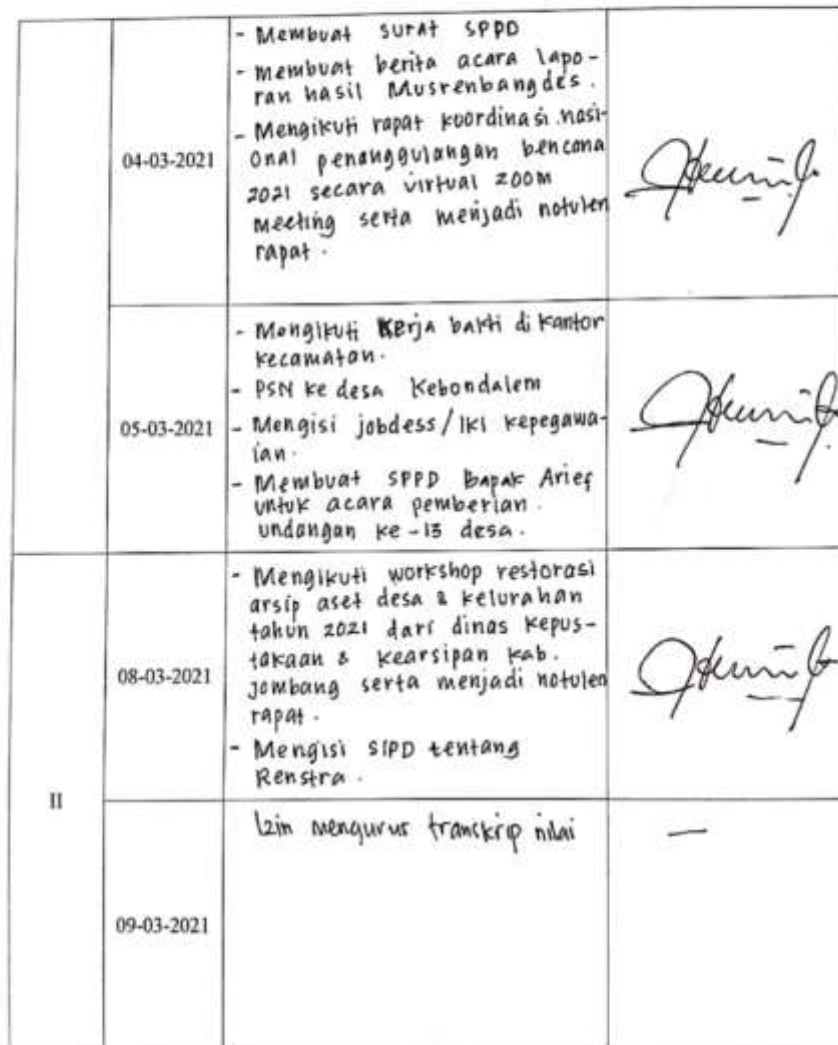 04-03-2021
- Membuat surat SPPD
- membuat berita acara lapo-
ran hasil Musrenbangdes.
- Mengikuti rapat koordinasi nasi-
onal penanggulangan bencana
2021 secara virtual zoom
meeting serta menjadi notulen
rapat.
05-03-2021
- Mengikuti Kerja bakti di kantor
kecamatan.
- PSN ke desa Kebondalem
- Mengisi jobdess/IKI kepegawa-
ian.
- Membuat SPPD Bapak Arief
untuk acara pemberian
undangan ke-13 desa.
II
08-03-2021
- Mengikuti workshop restorasi
arsip aset desa & kelurahan
tahun 2021 dari dinas kepus-
takaan & kearsipan kab.
jombang serta menjadi notulen
rapat.
- Mengisi SIPD tentang
Renstra.
09-03-2021
Izin mengurus transkrip nilai
—